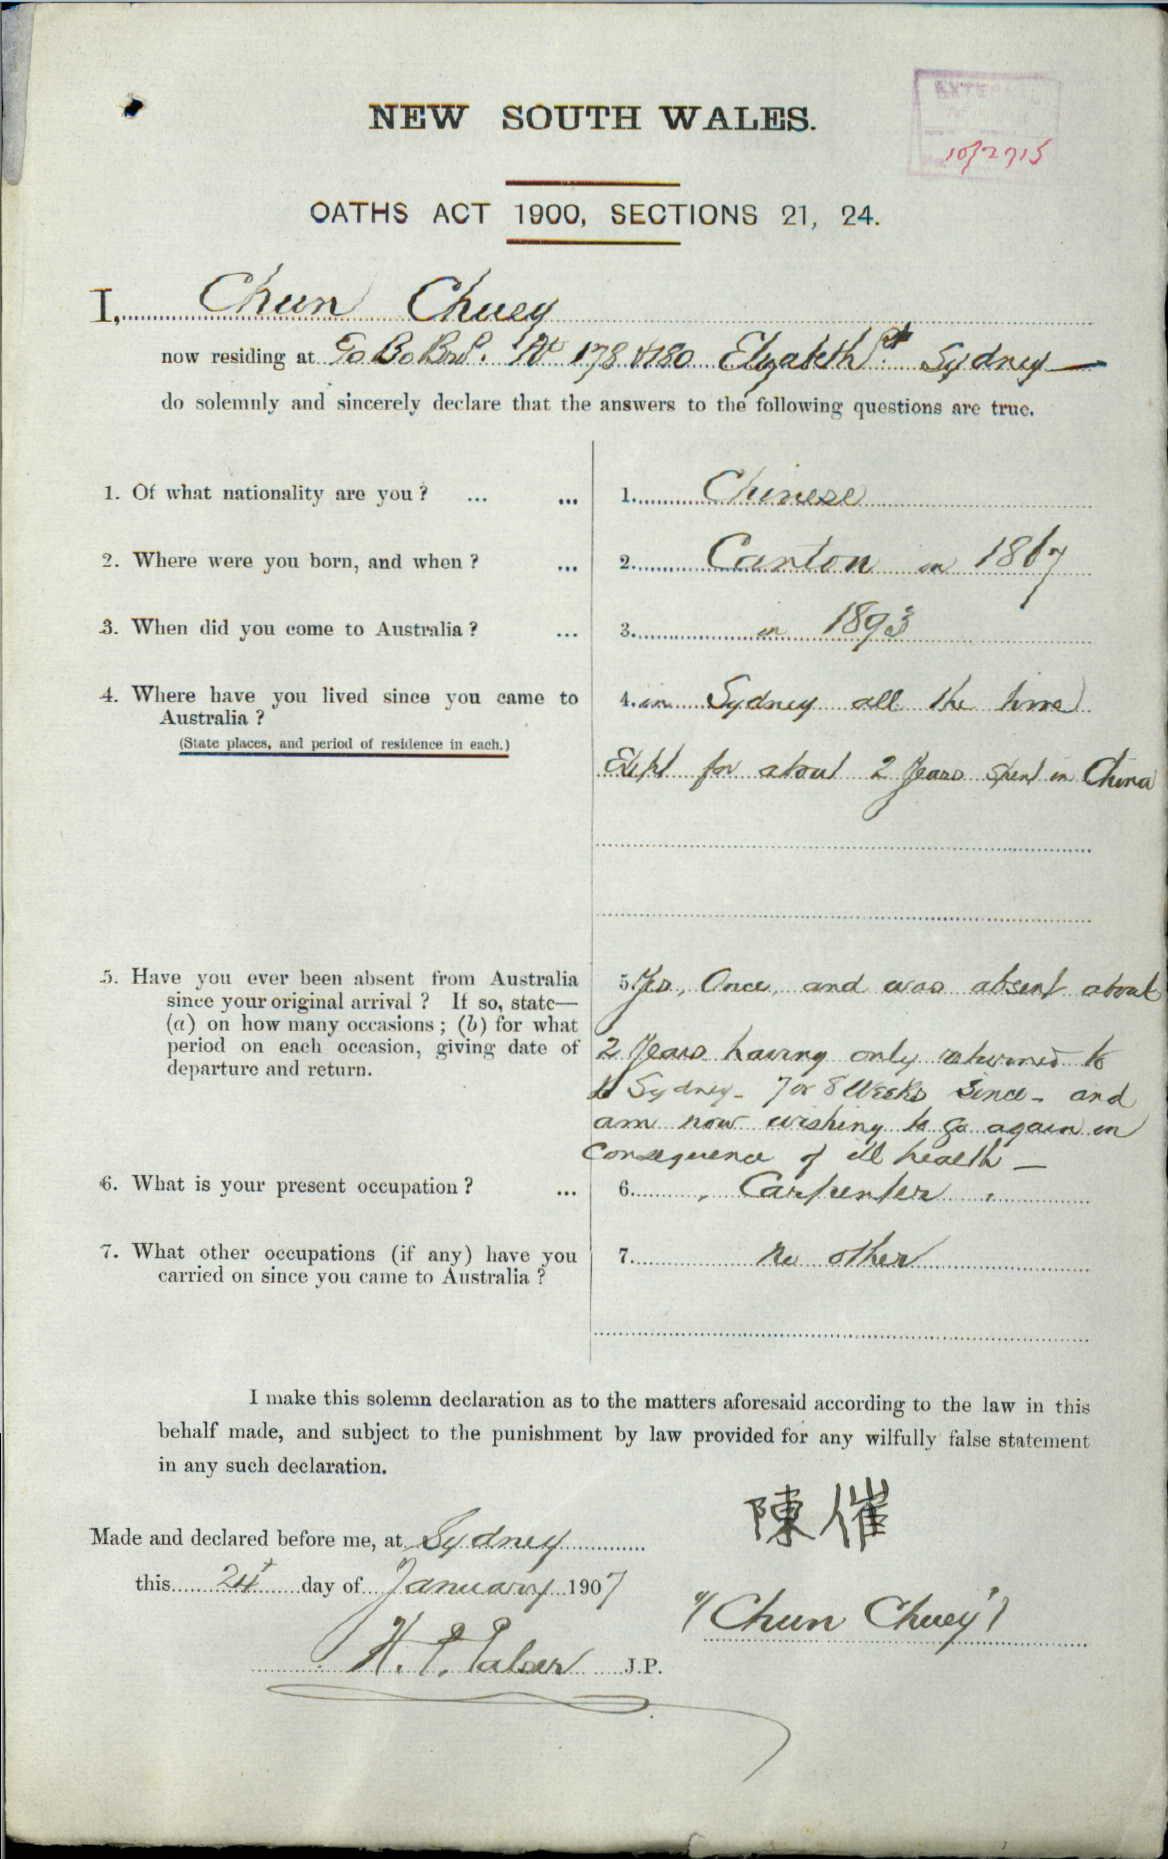 EXTERNAL
10/2715
NEW SOUTH WALES.
OATHS ACT 1900, SECTIONS 21, 24.
I, Chun Chuey
now residing at At 178 & 180 Elizabeth St. Sydney
do solemnly and sincerely declare that the answers to the following questions are true.
1. Of what nationality are you? ... ... 1. Chinese
2. Where were you born, and when? ... 2. Canton in 1867
3. When did you come to Australia? ... 3. in 1893
4. Where have you lived since you came to Australia? 4. in Sydney all the time
(State places, and period of residence in each.)
Exept for about 2 Years spent in China
5. Have you ever been absent from Australia
since your original arrival? If so, state—
(a) on how many occasions; (b) for what
period on each occasion, giving date of
departure and return.
5. Yes, Once, and was absent about
2 Years having only returned to
to Sydney - 7 or 8 Weeks since - and
am now wishing to go again in
Consequence of ill health —
6. What is your present occupation? ... 6. Carpenter
7. What other occupations (if any) have you
carried on since you came to Australia?
7. No other
I make this solemn declaration as to the matters aforesaid according to the law in this
behalf made, and subject to the punishment by law provided for any wilfully false statement
in any such declaration.
陳催
Made and declared before me, at Sydney
this 24t day of January 1907
"Chun Chuey"
J.P.